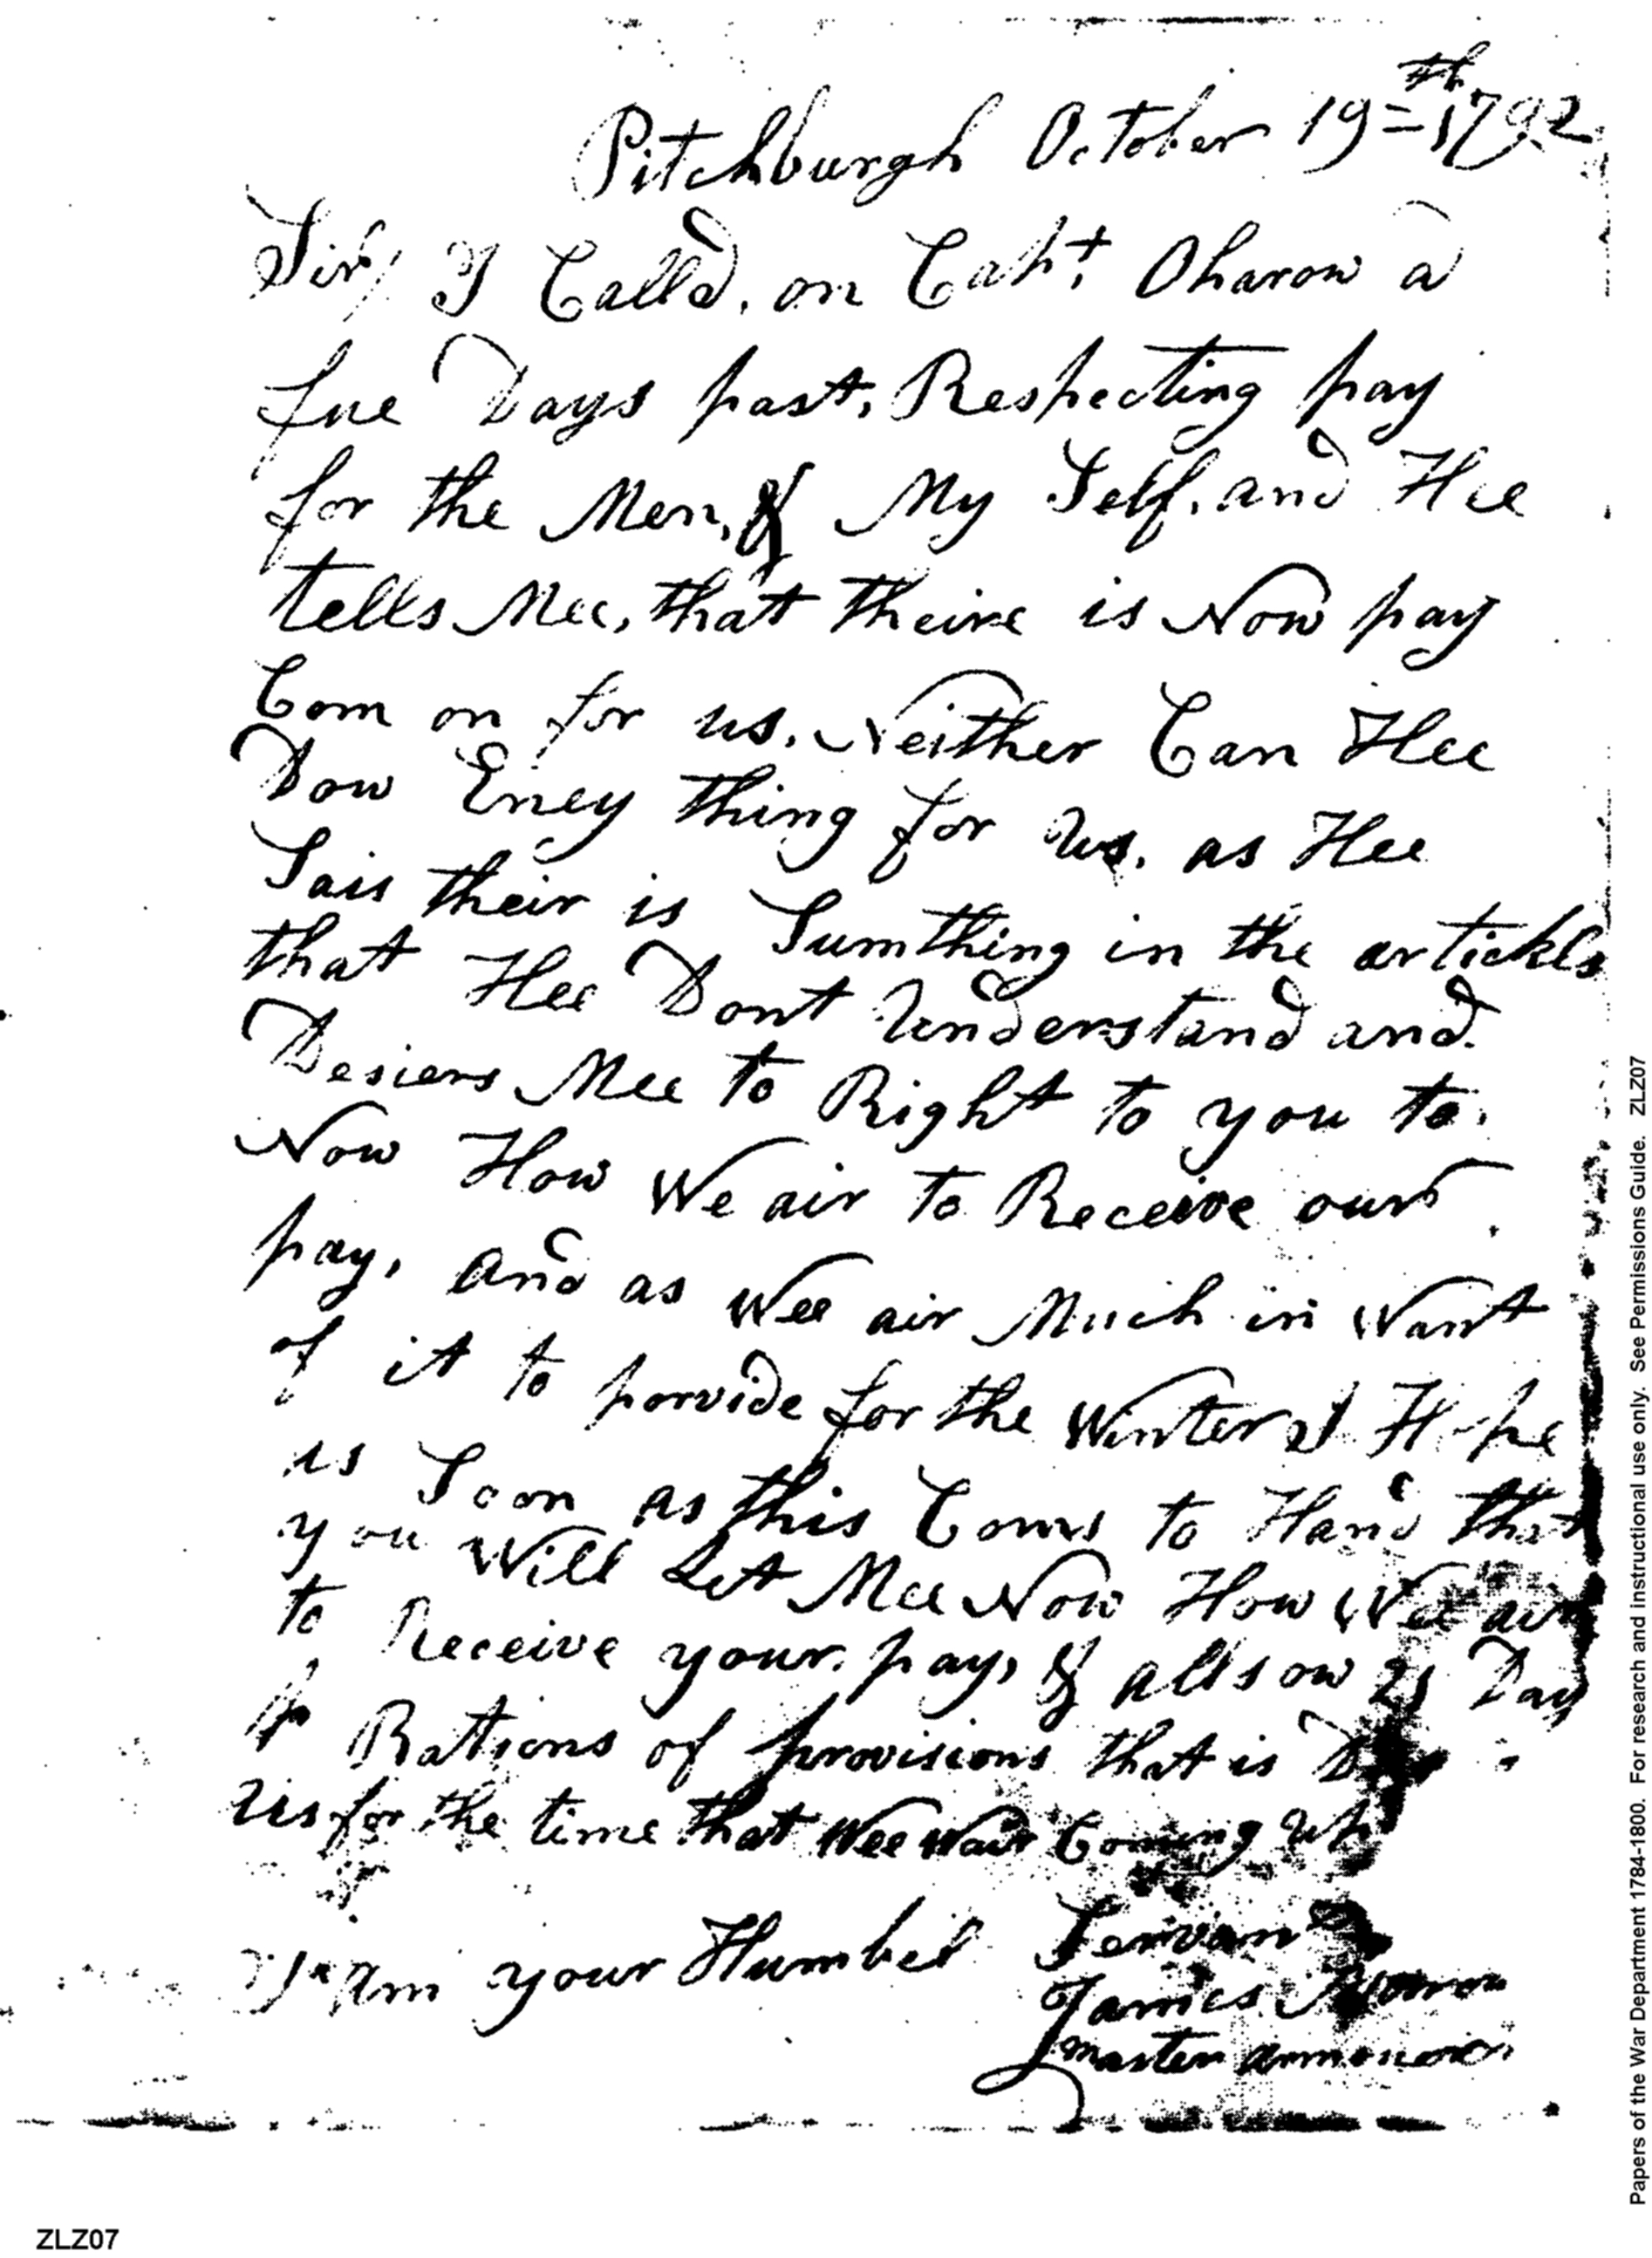 Pitchburgh October 19th 1792
Sir/ I Calld, on Capt. Oharow a
fue Days past, Respecting pay
for the Men, & My Self, and Hee
tells Mee, that theire is Now pay
Com on for us, Neither Can Hee
Dow Eney thing for us, as Hee
Sais their is Sumthing in the artickls
that Hee Dont Understand and
Desiers Mee to Right to you to
Now How We air to Receive our
pay, and as Wee air Much in Want
of it to porvide for the Winter I Hope
as Soon as this Coms to Hand that
you Will Let Mee Now How Wee air
to Receive your pay, & allsow 21 Day
Rations of provisions that is
us for the time that Wee Wair Coming up
I am your Humbel Servant
James
master armourer
Papers of the War Department 1784-1800. For research and instructional use only. See Permissions Guide. ZLZ07
ZLZ07